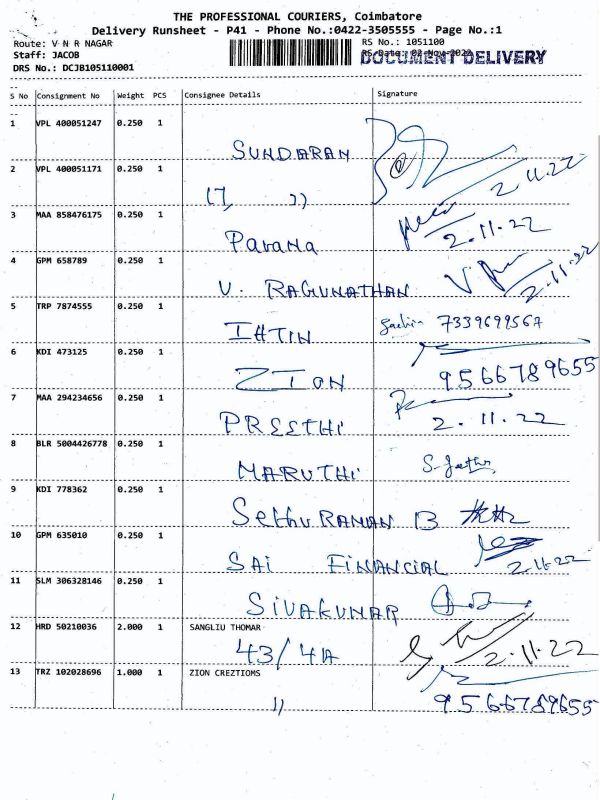 THE PROFESSIONAL COURIERS, Coimbatore
Delivery Runsheet - P41 - Phone No.:0422-3505555 - Page No.:1
Route: V N R NAGAR RS No.: 1051100
Staff: JACOB RS Date: 02-Nov-2022 DOCUMENT DELIVERY
DRS No.: DCJB105110001
S No Consignment No Weight PCS Consignee Details Signature
1 VPL 400051247 0.250 1
SUNDARAN
2 VPL 400051171 0.250 1 2.11.22
17, ))
3 MAA 858476175 0.250 1 2.11.22
Pavana
4 GPM 658789 0.250 1 2.11.22
V. RAGUNATHAN
5 TRP 7874555 0.250 1
IATIN 7339699567
6 KDI 473125 0.250 1
ZION 9566789655
7 MAA 294234656 0.250 1
PREETHI 2.11.22
8 BLR 5004426778 0.250 1
MARUTHI
9 KDI 778362 0.250 1
Sethu RAMAN B
10 GPM 635010 0.250 1
SAI FINANCIAL 2.11.22
11 SLM 306328146 0.250 1
SIVAKUMAR
12 HRD 50210036 2.000 1 SANGLIU THOMAR
43/41A 2.11.22
13 TRZ 102028696 1.000 1 ZION CREZTIOMS
)) 9566789655